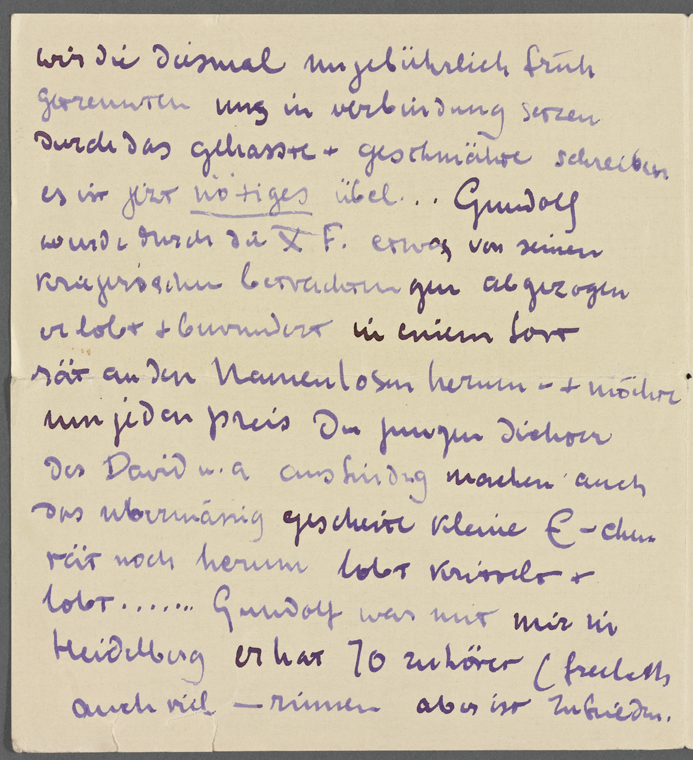 wir die diesmal ungebührlich früh
getrennten uns in verbindung setzen
durch das gehasste + geschmähte schreiben
es ist jezt nötiges übel... Gundolf
wurde durch die X F. etwas von seinen
kriegerischen betrachtungen abgezogen
er lobt + bewundert in einem fort
rät an den Namenlosen herum - + möchte
um jeden preis den jungen dichter
des David u. a ausfindig machen auch
das übermässig gescheite kleine E-chen
rät noch herum lobt krittelt +
lobt....... Gundolf war mit mir in
Heidelberg er hat 70 zuhörer (freilich
auch viel —rinnen aber ist zufrieden.